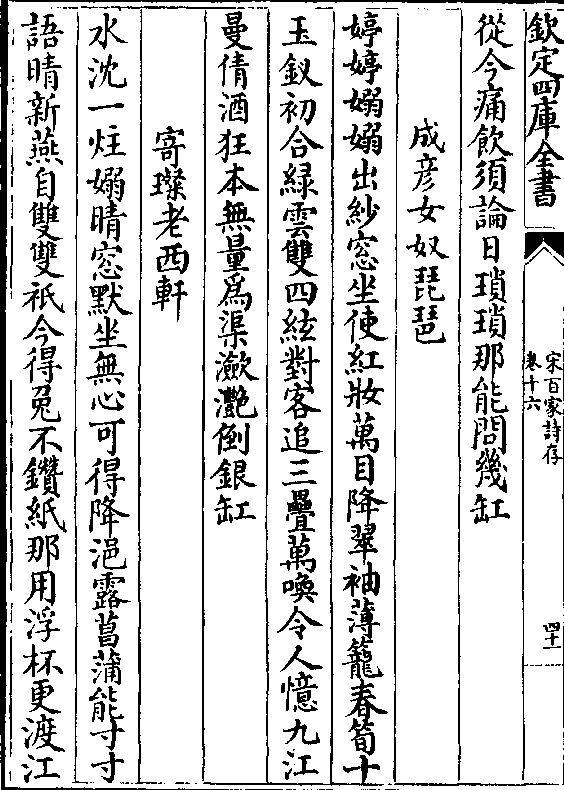 欽定四庫全書
宋百家詩存
卷十六
四十一
從今痛飲須論日瑣瑣那能問幾缸
成彦女奴琵琶
婷婷嫋嫋出紗窓坐使紅妝萬目降翠袖薄籠春筍十
玉釵初合緑雲雙四絃對客追三疊萬喚令人憶九江
曼倩酒狂本無量為渠瀲灧倒銀缸
寄璨老西軒
水沈一炷嫋晴窓默坐無心可得降浥露菖蒲能寸寸
語晴新燕自雙雙祇今得兎不鑽紙那用浮杯更渡江